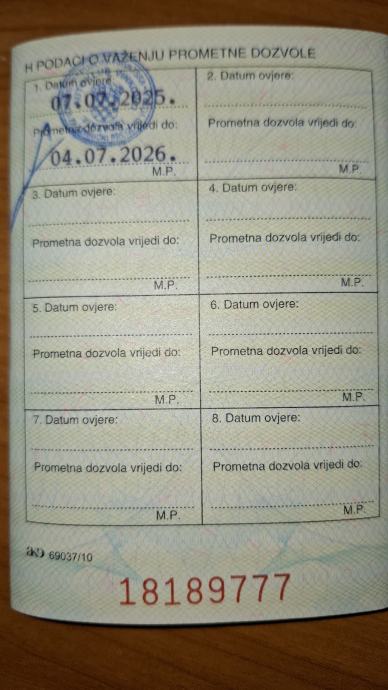 H PODACI O VAŽENJU PROMETNE DOZVOLE
1. Datum ovjere:
07.07.2025.
Prometna dozvola vrijedi do:
04.07.2026.
M.P.
2. Datum ovjere:
Prometna dozvola vrijedi do:
M.P.
3. Datum ovjere:
Prometna dozvola vrijedi do:
M.P.
4. Datum ovjere:
Prometna dozvola vrijedi do:
M.P.
5. Datum ovjere:
Prometna dozvola vrijedi do:
M.P.
6. Datum ovjere:
Prometna dozvola vrijedi do:
M.P.
7. Datum ovjere:
Prometna dozvola vrijedi do:
M.P.
8. Datum ovjere:
Prometna dozvola vrijedi do:
M.P.
69037/10
18189777